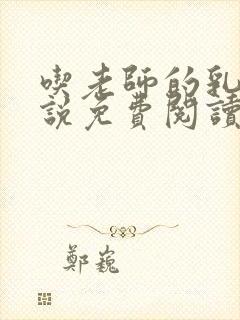 喫老師的乳
說免費閱讀
鄭巍